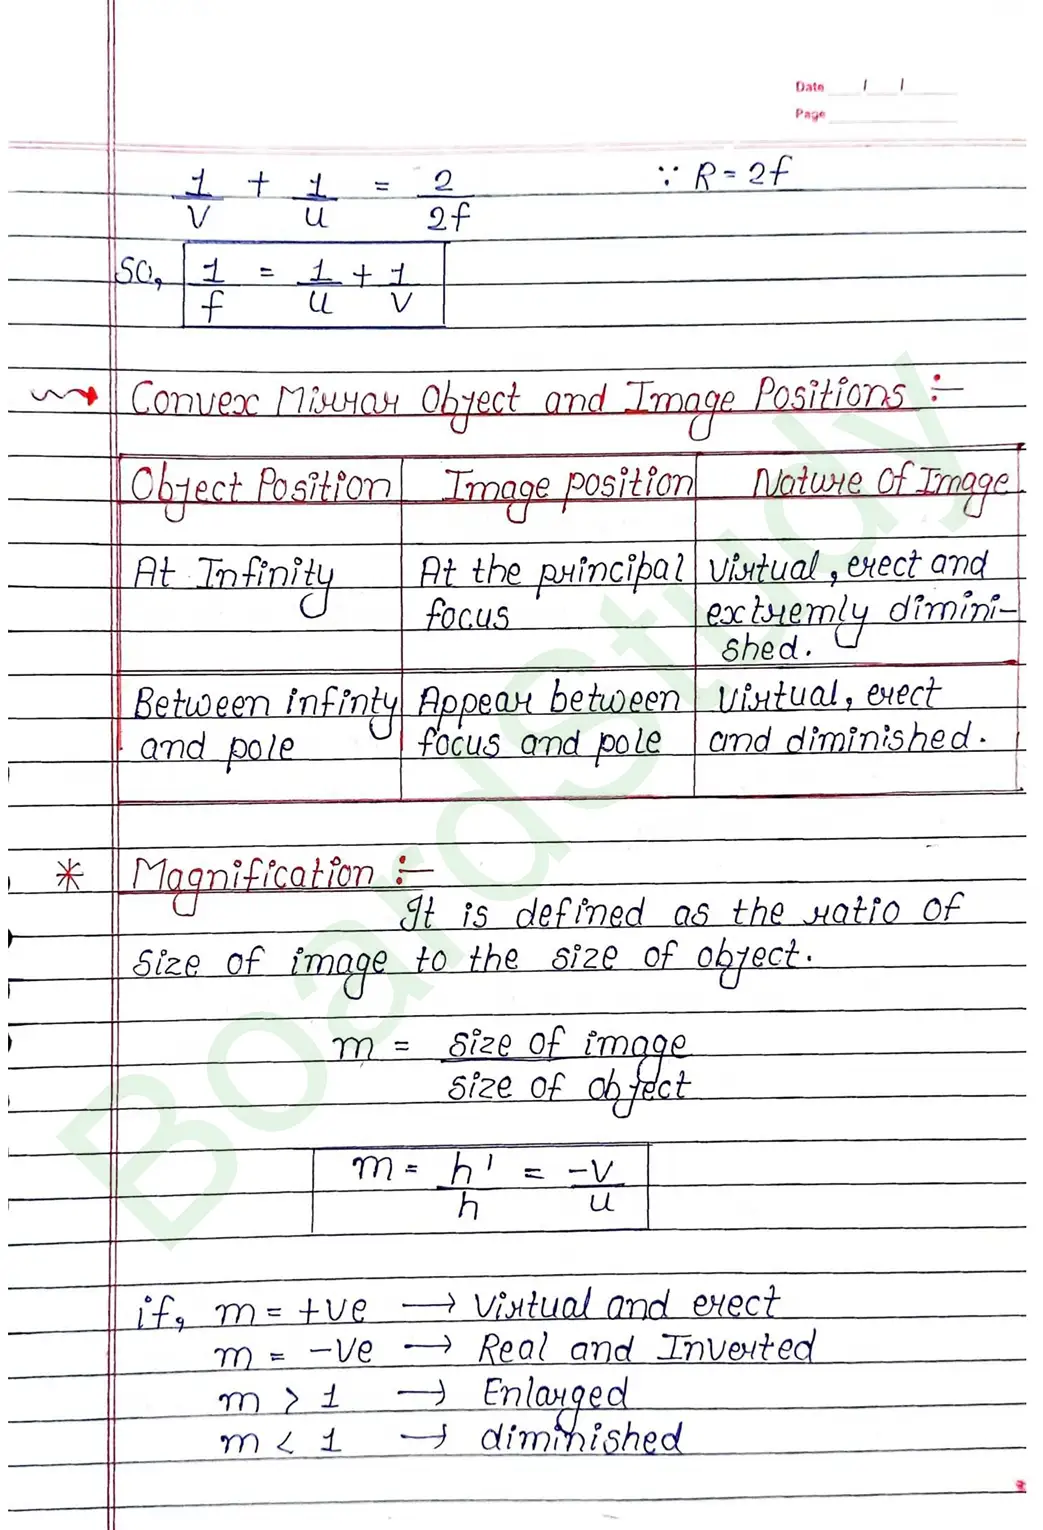 Date / /
Page
1/v + 1/u = 2/2f ∵ R = 2f
so, 1/f = 1/u + 1/v
Convex Mirror Object and Image Positions :-
Object Position | Image position | Nature of Image
At Infinity | At the principal | virtual, erect and
focus | extremly dimini-
shed.
Between infinty | Appear between | virtual, erect
and pole | focus and pole | and diminished.
* Magnification :-
It is defined as the ratio of
size of image to the size of object.
m = size of image
size of object
m = h'/h = -v/u
if, m = +ve → virtual and erect
m = -ve → Real and Inverted
m > 1 → Enlarged
m < 1 → diminished
BoardStudy